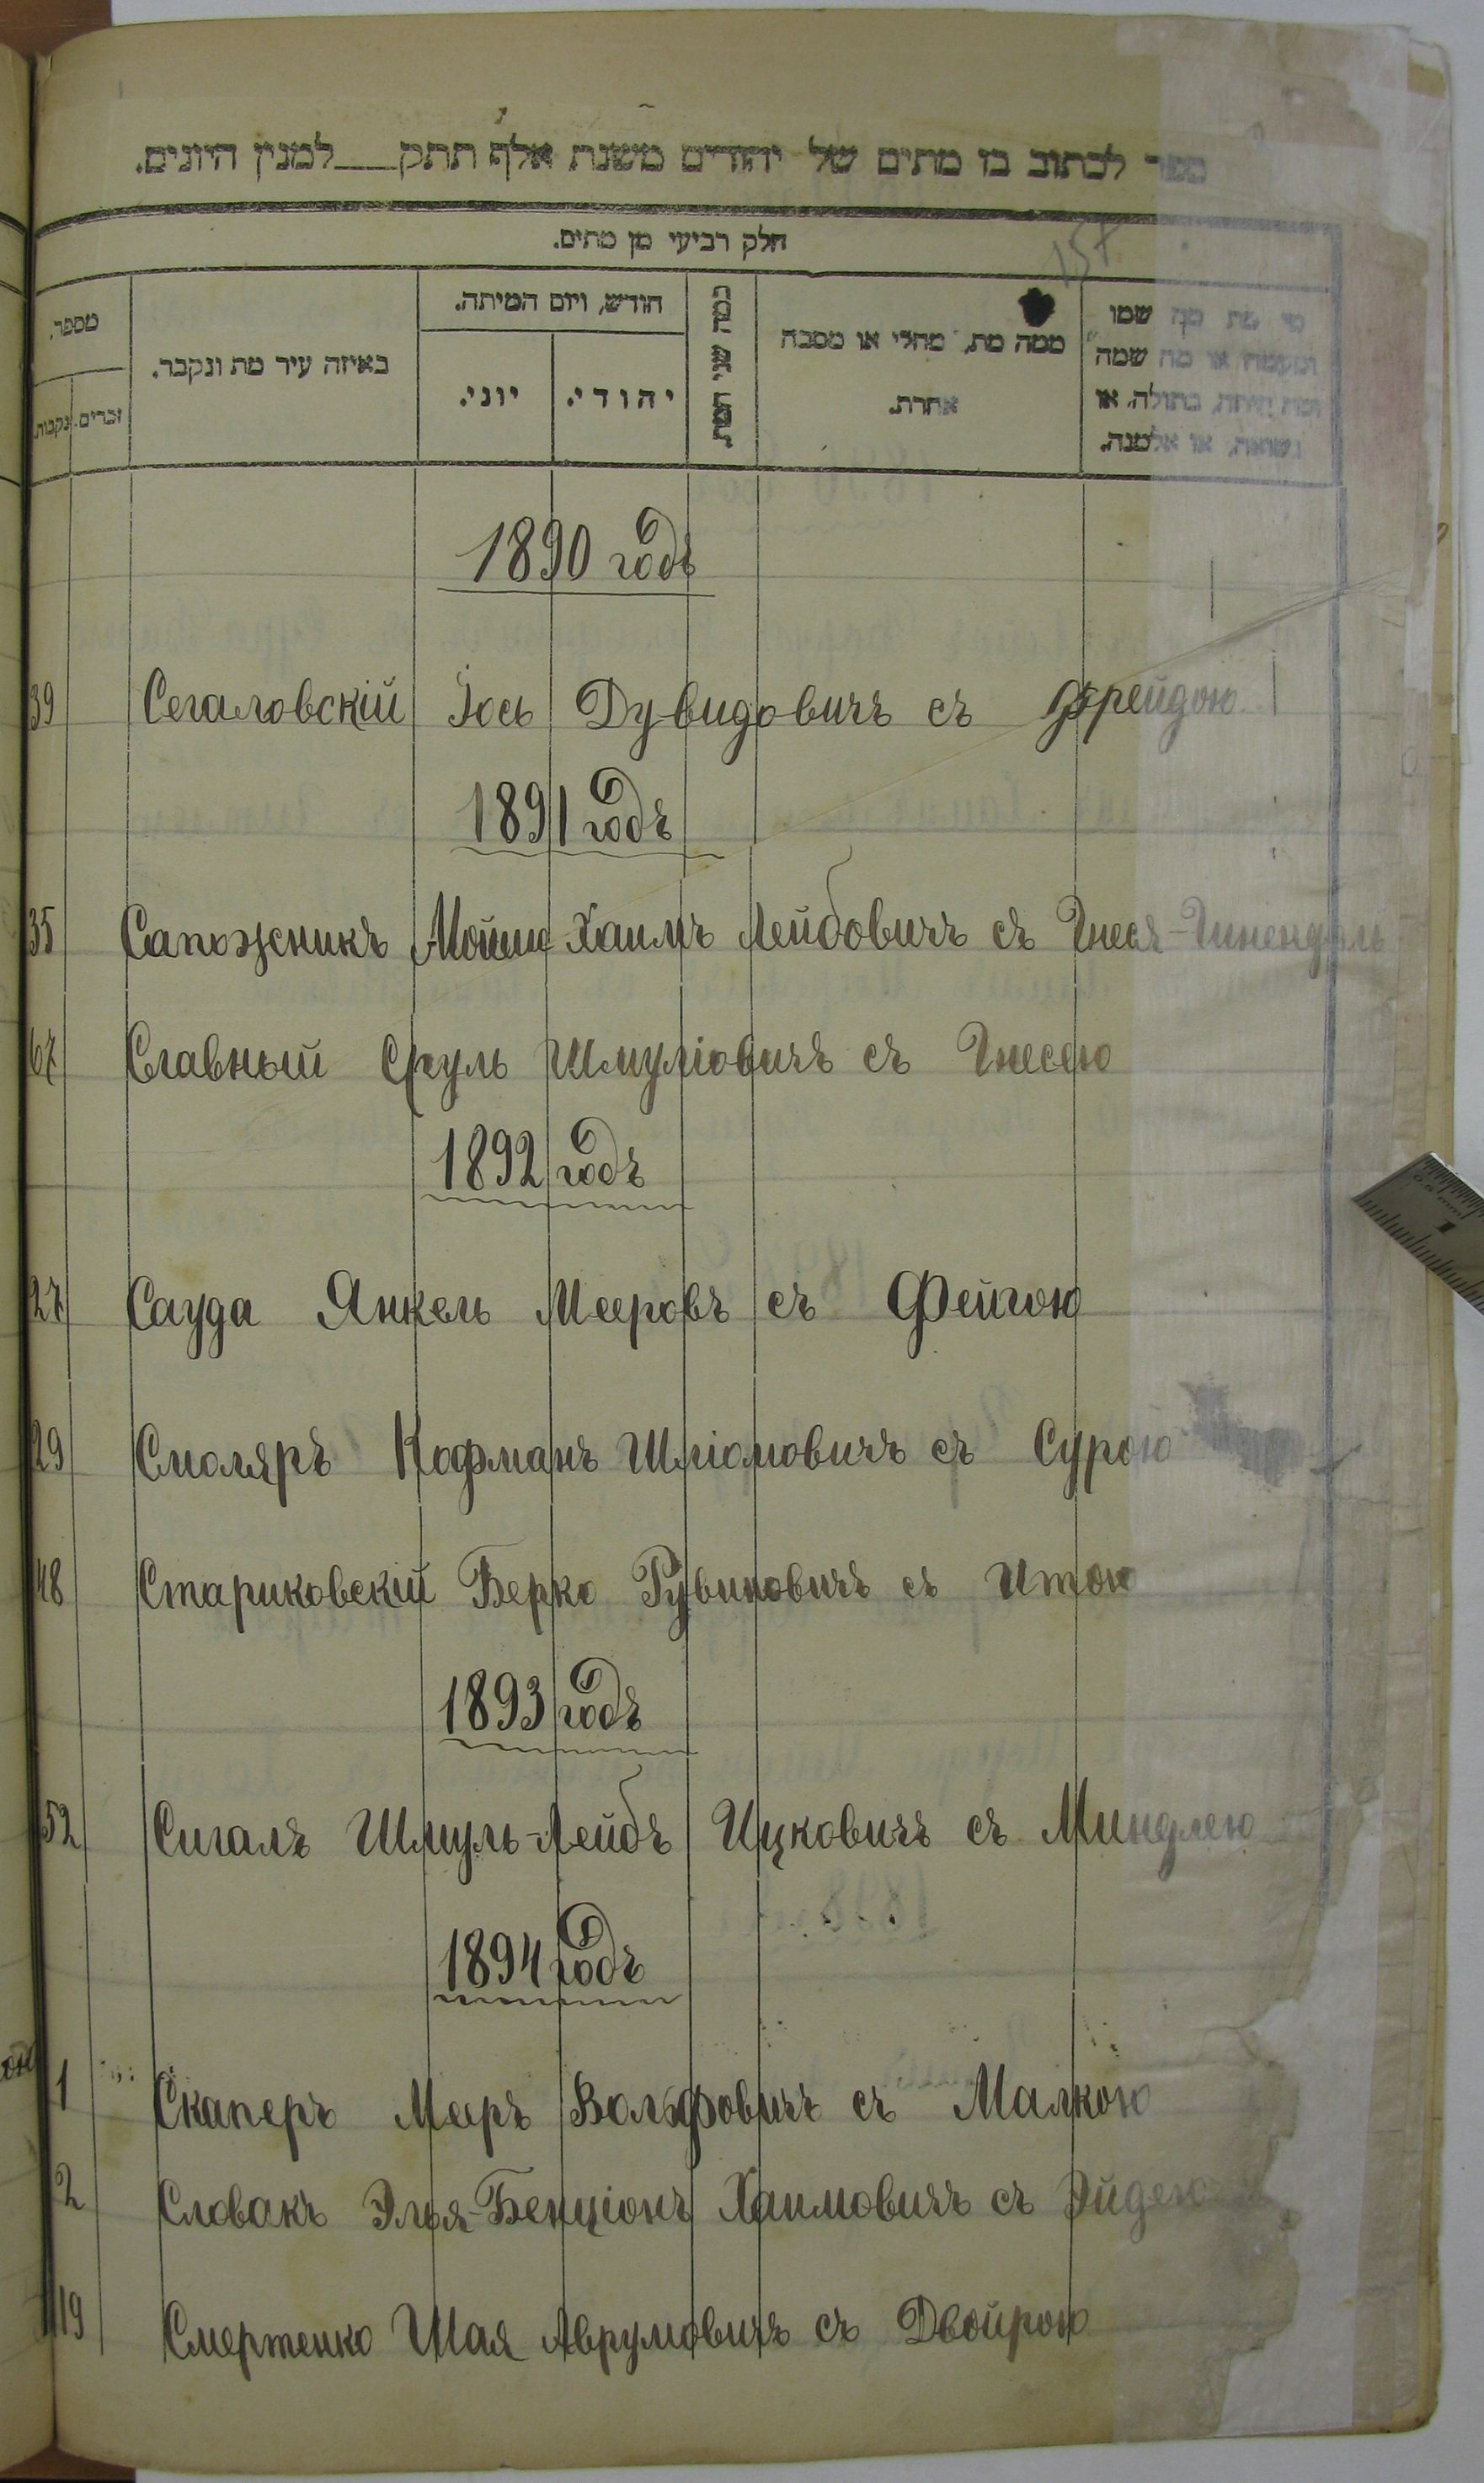 ספר לכתוב בו מתים של יהודים משנת אלף תתק למנין היונים.
חלק רביעי מן מתים.
157
מספר.
זכרים. נקבות.
באיזה עיר מת ונקבר.
חודש, ויום המיתה.
יוני.
יהודי.
כמה שני המת.
ממה מת, מחלי או מסבה
אחרת.
מי מת מה שמו
או מה שמה
בתולה, או
נשואה, או אלמנה.
1890 годъ
39 Сегаловскій Іось Дувидовичъ съ Фрейдою
1891 годъ
35 Сапожникъ Мойше-Хаимъ Лейбовичъ съ Гнеся-Гинендель
67 Славный Сруль Шмуліовичъ съ Гнесею
1892 годъ
27 Сауда Янкель Мееровъ съ Фейгою
29 Смоляръ Кофманъ Шліомовичъ съ Сурою
48 Стариковскій Берко Рувиновичъ съ Итою
1893 годъ
52 Сигалъ Шмуль-Лейбъ Ицковичъ съ Миндлею
1894 годъ
1 Скаперъ Мееръ Вольфовичъ съ Малкою
2 Словакъ Элья-Бенціонъ Хаимовичъ съ Эйдею
19 Смертенко Шая Аврумовичъ съ Двойрою